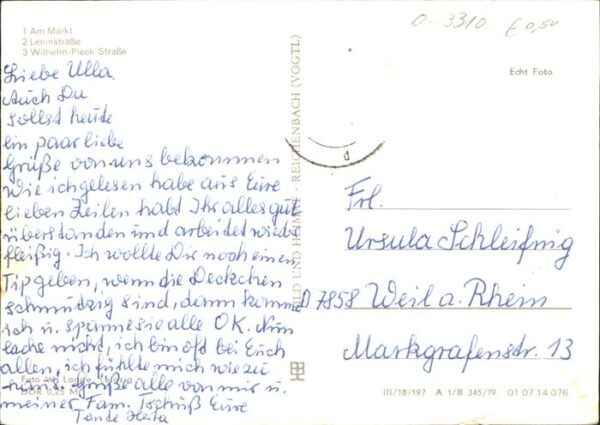 O-3310 € 0,50
1 Am Markt
2 Leninstraße
3 Wilhelm-Pieck-Straße
Echt Foto
Liebe Ulla.
Auch Du
sollst heute
ein paar liebe
Grüße von uns bekommen
Wie ich gelesen habe aus Eure
lieben Zeilen habt Ihr alles gut
überstanden und arbeitet wieder
fleißig. Ich wollte Dir noch einen
Tip geben, wenn die Deckchen
schmutzig sind, dann komme
ich u. spanne sie alle OK. Nun
lache nicht, ich bin oft bei Euch
allen, ich fühlte mich wie zu
haus. Grüße alle von mir u.
meiner Fam. Tschüß Eure
Tante Herta
Foto
DDR 0,25 M
BILD UND HEIMAT · REICHENBACH (VOGTL)
d
Frl.
Ursula Schleifnig
D 7858 Weil a. Rhein
Markgrafenstr. 13
III/18/197 A 1/B 345/79 01 07 14 076